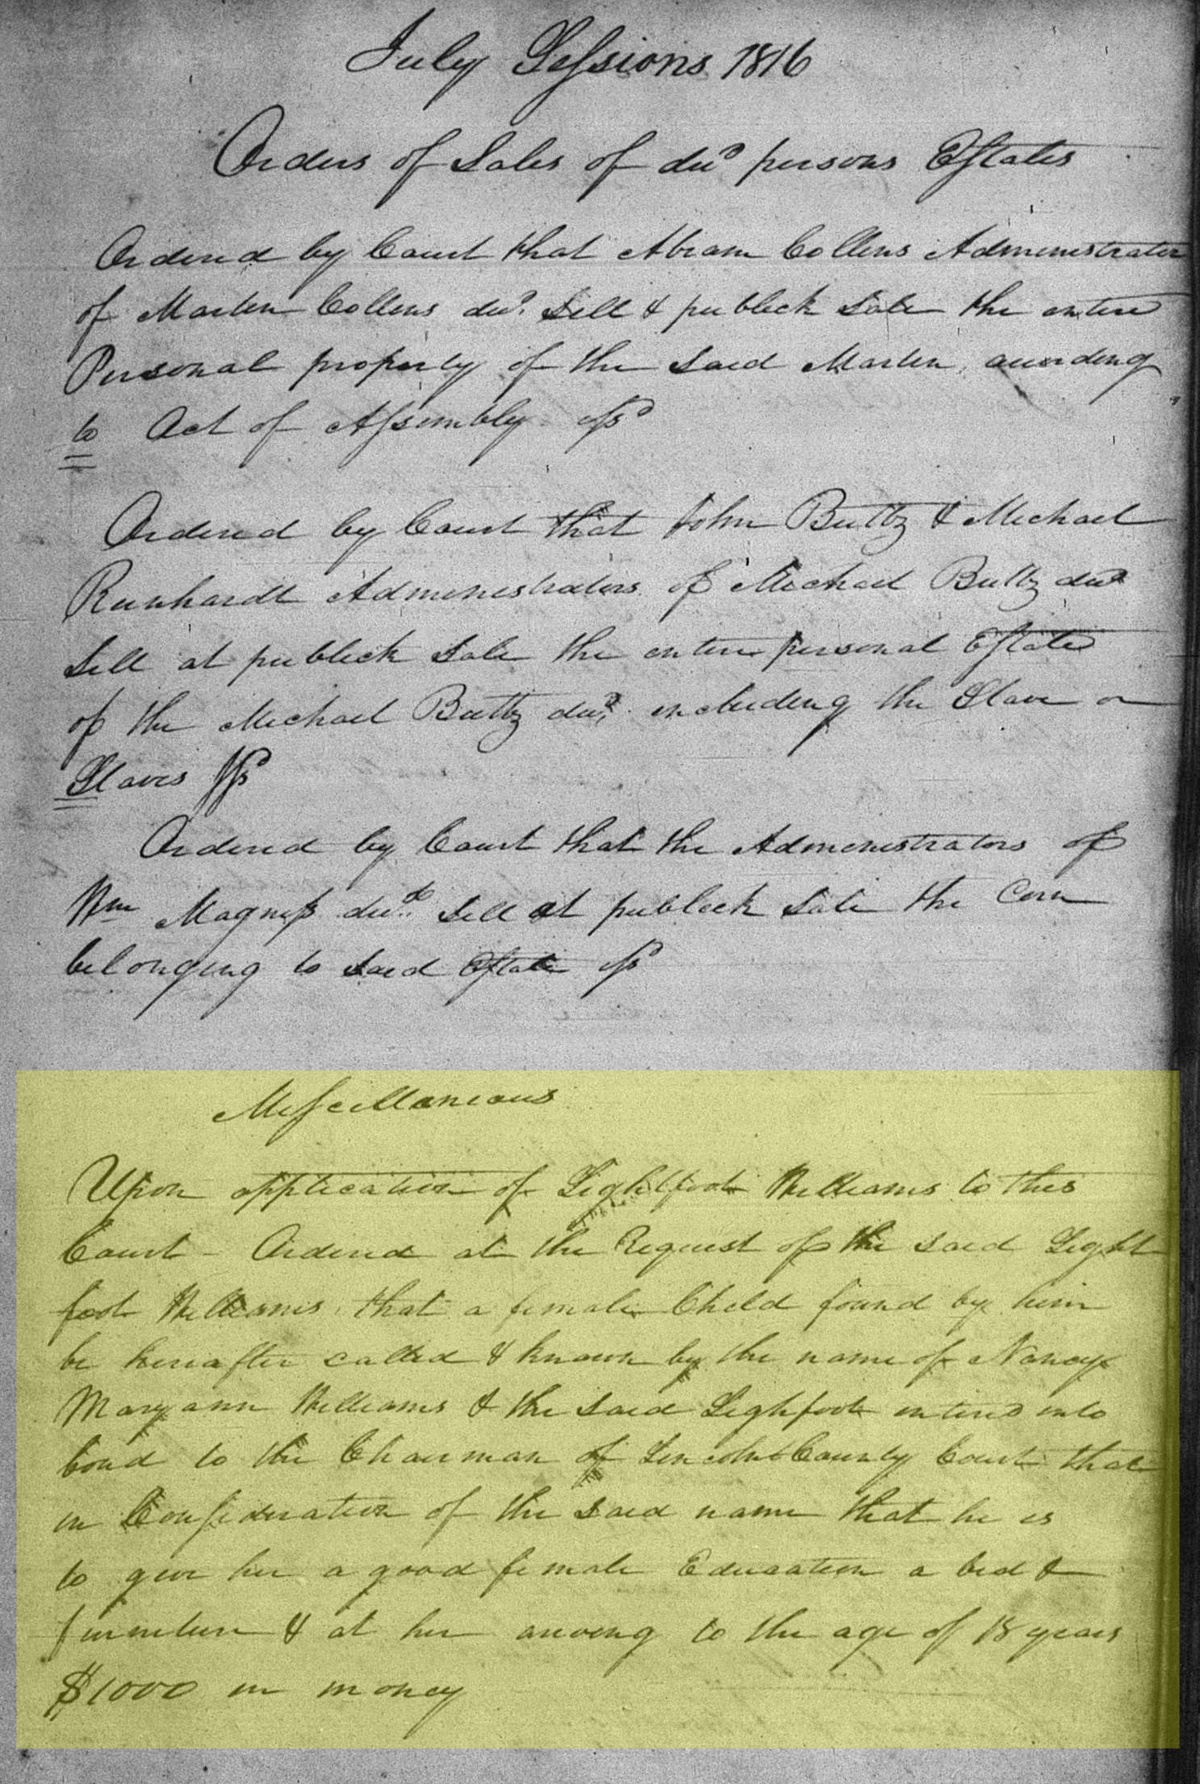 July Sessions 1816
Orders of Sales of decd persons Estates
Ordered by Court that Abram Collens Administrator
of Marten Collens decd. Sell & publick Sale the entire
Personal property of the said Marten, according
to Act of Assembly
Ordered by Court that John Buttz & Michael
Reinhardt Administrators of Michael Buttz decd
Sell at publick Sale the entire personal Estate
of the Michael Buttz decd. including the Slave or
Slaves
Ordered by Court that the Administrators of
Wm Magness decd. Sell at publick Sale the Corn
belonging to said Estate
Miscellaneous
Upon application of Lightfoot Williams to this
Court - Ordered at the Request of the said Light
foot Williams, that a female Child found by him
be hereafter called & known by the name of Nancy
Maryann Williams & the said Lighfoot entered into
bond to the Chairman of Lincoln County Court that
in Consideration of the said name that he is
to give her a good female Education a bed &
furniture & at her ariveng to the age of 18 years
$1000 in money